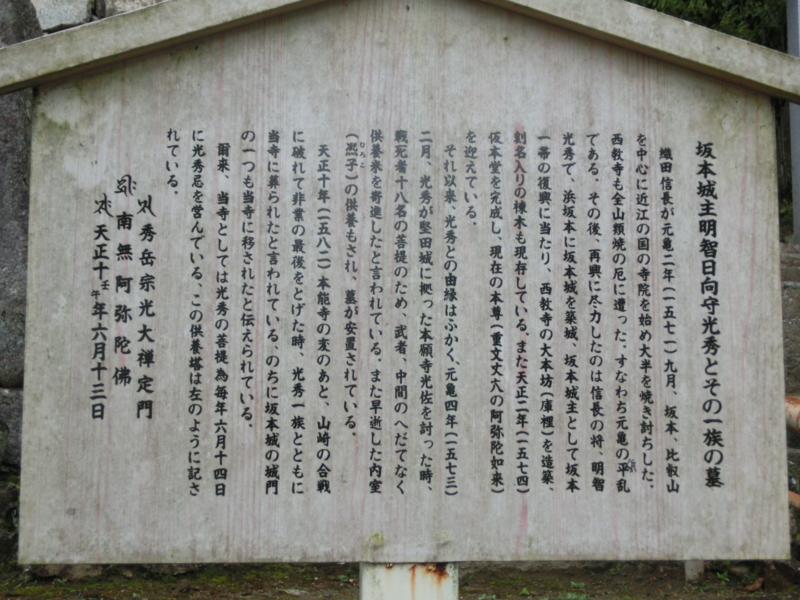 坂本城主明智日向守光秀とその一族の墓
織田信長が元亀二年(一五七一)九月、坂本、比叡山
を中心に近江の国の寺院を始め大半を焼き討ちした。
西教寺も全山類焼の厄に遭った。すなわち元亀の平乱
である。その後、再興に尽力したのは信長の将、明智
光秀で、浜坂本に坂本城を築城、坂本城主として坂本
一帯の復興に当たり、西教寺の大本坊(庫裡)を造築、
刻名入りの棟木も現存している。また天正二年(一五七四)
仮本堂を完成し、現在の本尊(重文丈六の阿弥陀如来)
を迎えている。
それ以来、光秀との由縁はふかく、元亀四年(一五七三)
二月、光秀が堅田城に拠った本願寺光佐を討った時、
戦死者十八名の菩提のため、武者、中間のへだてなく
供養米を寄進したと言われている。また早逝した内室
(熙子)の供養もされ、墓が安置されている。
天正十年(一五八二)本能寺の変のあと、山崎の合戦
に破れて非業の最後をとげた時、光秀一族とともに
当寺に葬られたと言われている、のちに坂本城の城門
の一つも当寺に移されたと伝えられている。
爾来、当寺としては光秀の菩提為毎年六月十四日
に光秀忌を営んでいる、この供養塔は左のように記さ
れている。
秀岳宗光大禅定門
南無阿弥陀佛
天正十壬午年六月十三日